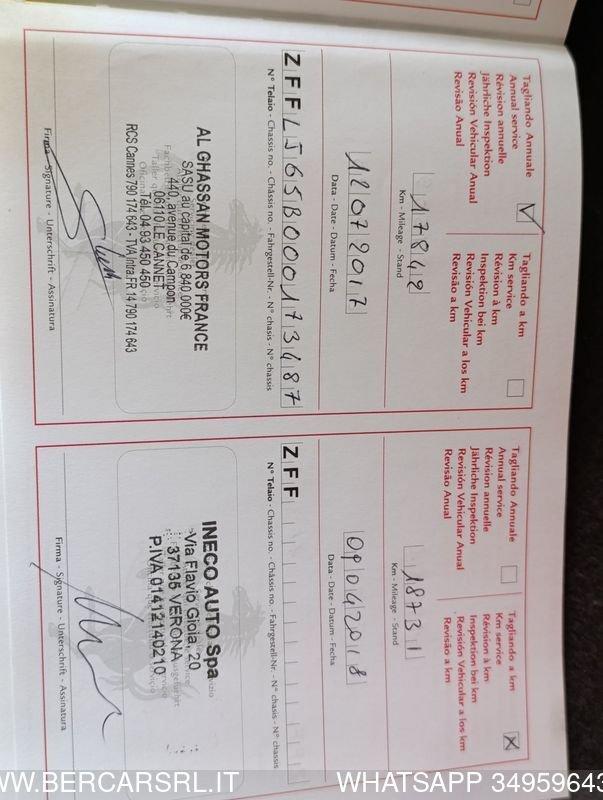 Tagliando Annuale
Annual service
Révision annuelle
Jährliche Inspektion
Revisión Vehicular Anual
Revisão Anual
Tagliando a km
Km service
Révision à km
Inspektion bei km
Revisión Vehicular a los km
Revisão a km
17842
Km - Mileage - Stand
12072017
Data - Date - Datum - Fecha
ZFFLJ65B000173487
N° Telaio - Chassis no. - Châssis no. - Fahrgestell-Nr. - N° chasis - N° chassis
AL GHASSAN MOTORS FRANCE
SASU au capital de 6 840 000€
440, avenue du Campon
06110 LE CANNET
Tél. 04 93 450 450
RCS Cannes 790 174 643 - TVA Intra FR 14 790 174 643
Firma - Signature - Unterschrift - Assinatura
Tagliando Annuale
Annual service
Révision annuelle
Jährliche Inspektion
Revisión Vehicular Anual
Revisão Anual
Tagliando a km
Km service
Révision à km
Inspektion bei km
Revisión Vehicular a los km
Revisão a km
18731
Km - Mileage - Stand
09042018
Data - Date - Datum - Fecha
ZFF
N° Telaio - Chassis no. - Châssis no. - Fahrgestell-Nr. - N° chasis - N° chassis
INECO AUTO Spa
Via Flavio Gioia, 20
37135 VERONA
P.IVA 01412140210
Firma - Signature - Unterschrift - Assinatura
WWW.BERCARSRL.IT
WHATSAPP 34959643